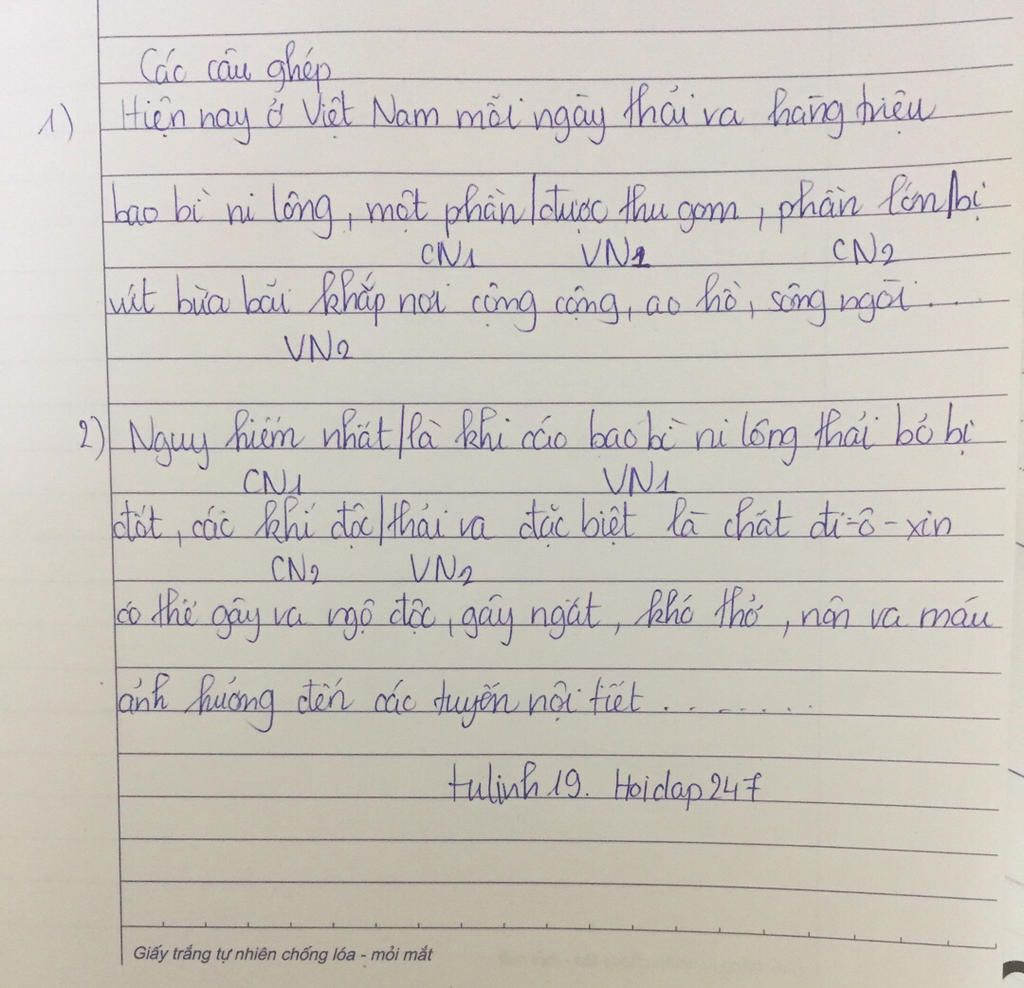 Các câu ghép
1) Hiện nay ở Việt Nam mỗi ngày thải ra hàng triệu
bao bì ni lông, một phần/được thu gom, phần lớn/bị
CN1 VN1 CN2
vứt bừa bãi khắp nơi công cộng, ao hồ, sông ngòi....
VN2
2) Nguy hiểm nhất/là khi các bao bì ni lông thải bỏ bị
CN1 VN1
đốt, các khí độc/thải ra đặc biệt là chất đi-ô-xin
CN2 VN2
có thể gây ra ngộ độc, gây ngất, khó thở, nôn ra máu
ảnh hưởng đến các tuyến nội tiết........
tulinh19. Hoidap247
Giấy trắng tự nhiên chống lóa - mỏi mắt